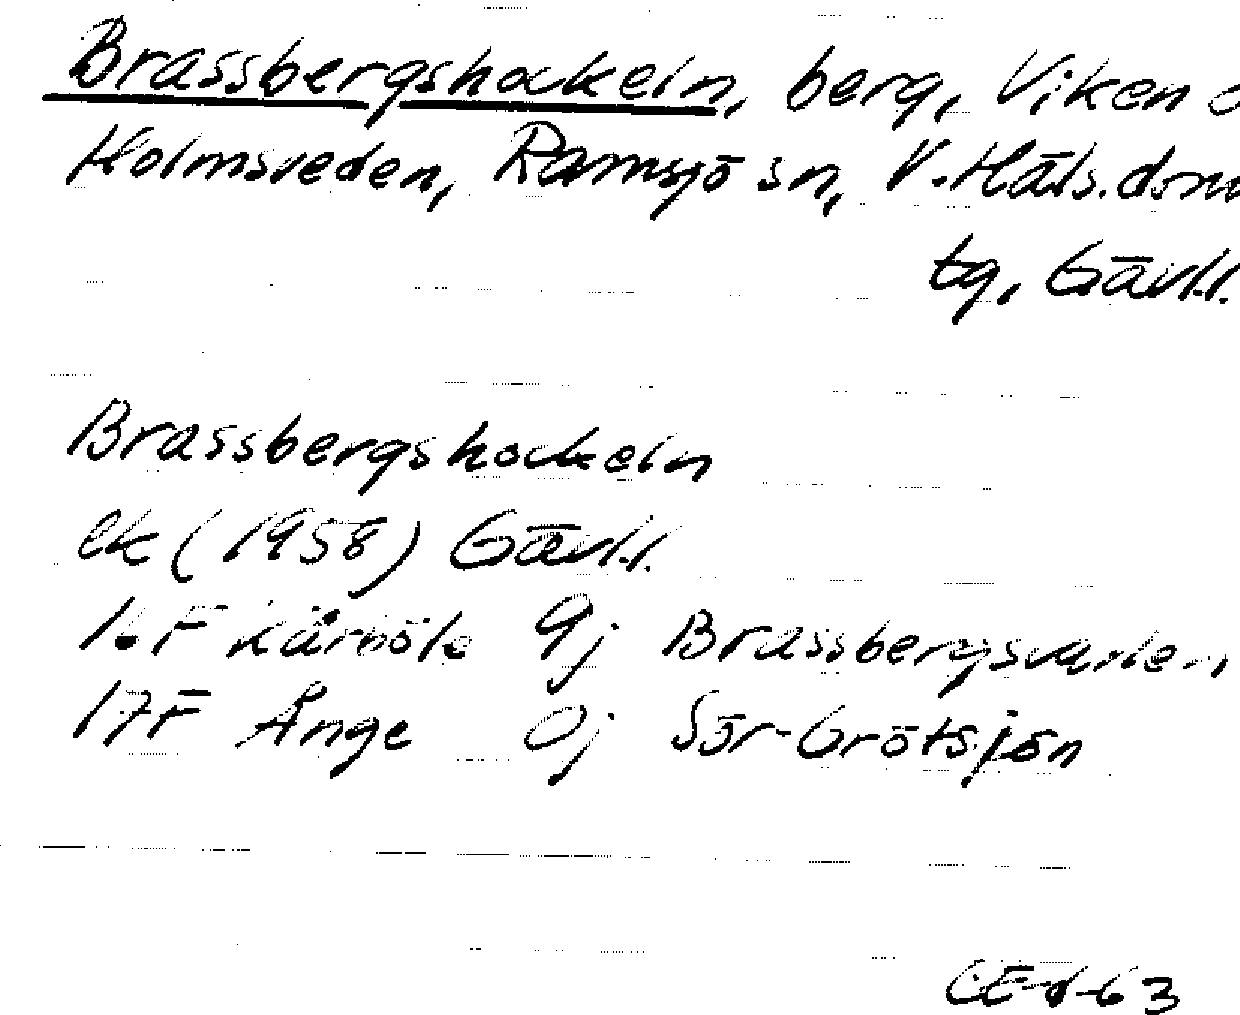 Brassbergshockeln, berg, Viken o
Holmsveden, Ramsjö sn, V. Häls. doms
tg, Gävl.l.
Brassbergshockeln
ek (1958) Gävl.l.
16F Kårböle 9j Brassbergsvarlen
17F Ånge 0j Sör-Grötsjön
63